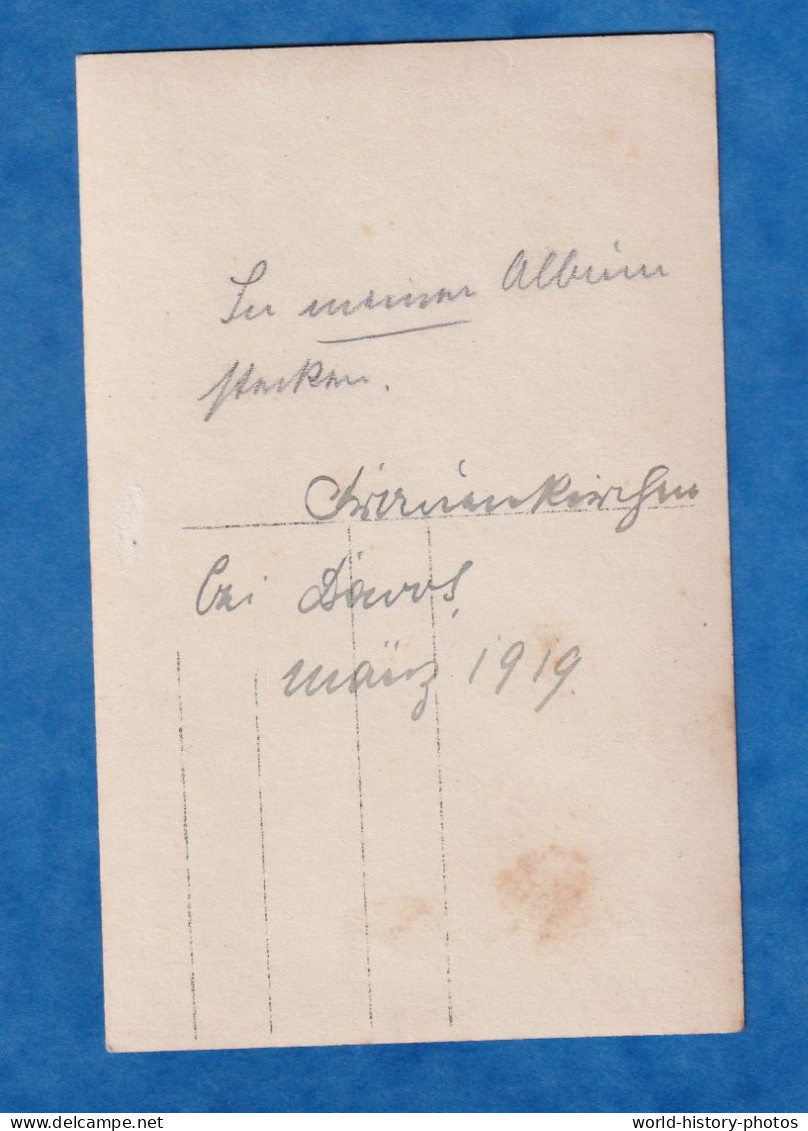 In meiner Album
stecken.
Frauenkirchen
bei Davos,
März 1919.
world-history-photos